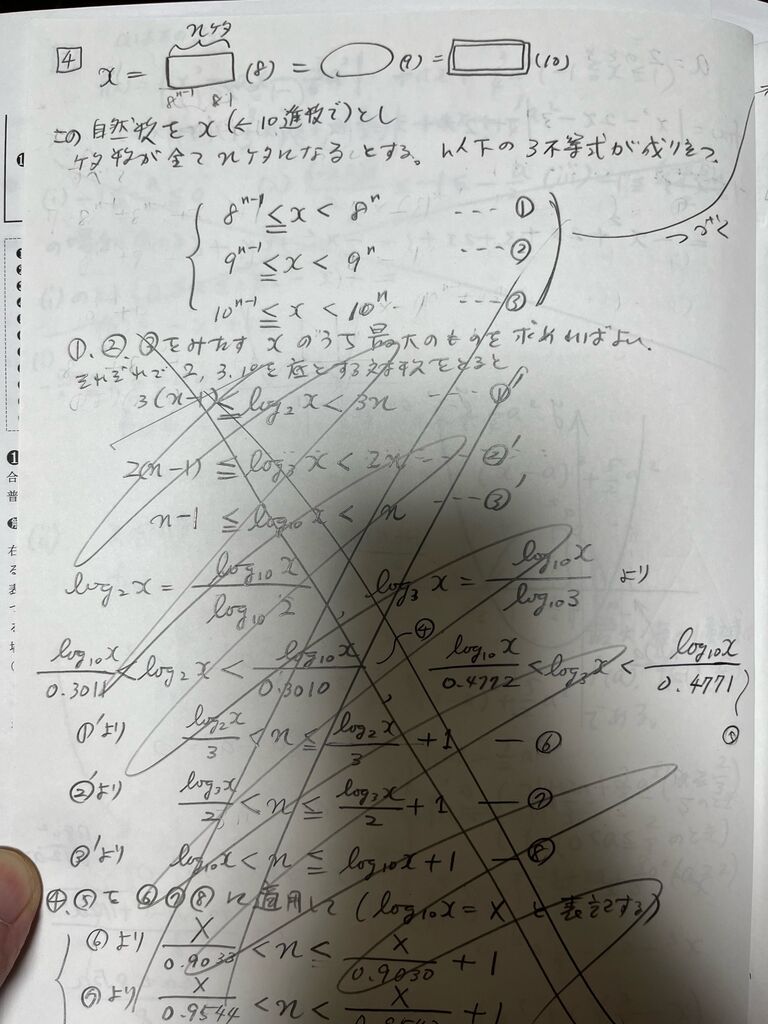 4 x = □(8) = ○(9) = □(10)
nケタ
8^{n-1} 8 1
この自然数をx(←10進数で)とし
ケタ数が全てnケタになるとする。以下の3不等式が成り立つ
8^{n-1} ≦ x < 8^n ---- ①
9^{n-1} ≦ x < 9^n ---- ②
10^{n-1} ≦ x < 10^n ---- ③
つづく
①、②、③をみたす xのうち最大のものを求めればよい、
それぞれで 2, 3, 10を底とする対数をとると
3(n-1) ≦ log₂x < 3n ---- ①'
2(n-1) ≦ log₃x < 2n ---- ②'
n-1 ≦ log₁₀x < n ---- ③'
log₂x = log₁₀x / log₁₀2 , log₃x = log₁₀x / log₁₀3 より
log₁₀x / 0.3011 < log₂x < log₁₀x / 0.3010 ④ , log₁₀x / 0.4772 < log₃x < log₁₀x / 0.4771 ⑤
①'より log₂x / 3 < n ≦ log₂x / 3 + 1 — ⑥
②'より log₃x / 2 < n ≦ log₃x / 2 + 1 — ⑦
③'より log₁₀x < n ≦ log₁₀x + 1 — ⑧
④、⑤を⑥⑦⑧に適用して (log₁₀x = X と表記する)
⑥より X / 0.9033 < n ≦ X / 0.9030 + 1
より X / 0.9544 < n ≦ X / 0.9542 + 1
合
普
右
る
表
す